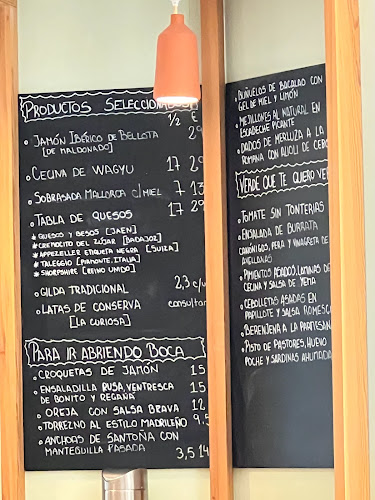 PRODUCTOS SELECCIONADOS
1/2 €
• JAMÓN IBÉRICO DE BELLOTA
[DE MALDONADO]
• CECINA DE WAGYU 17 29
• SOBRASADA MALLORCA C/MIEL 7 13
• TABLA DE QUESOS 17 29
* QUESOS Y BESOS [JAEN]
* CREMOCITO DEL ZÚJAR [BADAJOZ]
* APPEZELLER ETIQUETA NEGRA [SUIZA]
* TALEGGIO [PIAMONTE, ITALIA]
* SHORPSHIRE [REINO UNIDO]
• GILDA TRADICIONAL 2,3 c/u
• LATAS DE CONSERVA consultar
[LA CURIOSA]
PARA IR ABRIENDO BOCA
• CROQUETAS DE JAMÓN 15
• ENSALADILLA RUSA, VENTRESCA
DE BONITO Y REGAÑÁ 15
• OREJA CON SALSA BRAVA 12
• TORREZNO AL ESTILO MADRILEÑO 9.5
• ANCHOAS DE SANTOÑA CON
MANTEQUILLA PASADA 3,5 14
• BUÑUELOS DE BACALAO CON
GEL DE MIEL Y LIMÓN
• MEJILLONES AL NATURAL EN
ESCABECHE PICANTE
• DADOS DE MERLUZA A LA
ROMANA CON ALIOLI DE
VERDE QUE TE QUIERO
• TOMATE SIN TONTERIAS
• ENSALADA DE BURRATA
CANÓNIGOS, PERA Y VINAGRETA DE
AVELLANAS
• PIMIENTOS ASADOS, LAMINAS DE
CECINA Y SALSA DE YEMA
• CEBOLLETAS ASADAS EN
PAPILLOTE Y SALSA ROMESCO
• BERENJENA A LA PARMESANA
• PISTO DE PASTORES, HUEVO
POCHE Y SARDINAS AHUMADAS